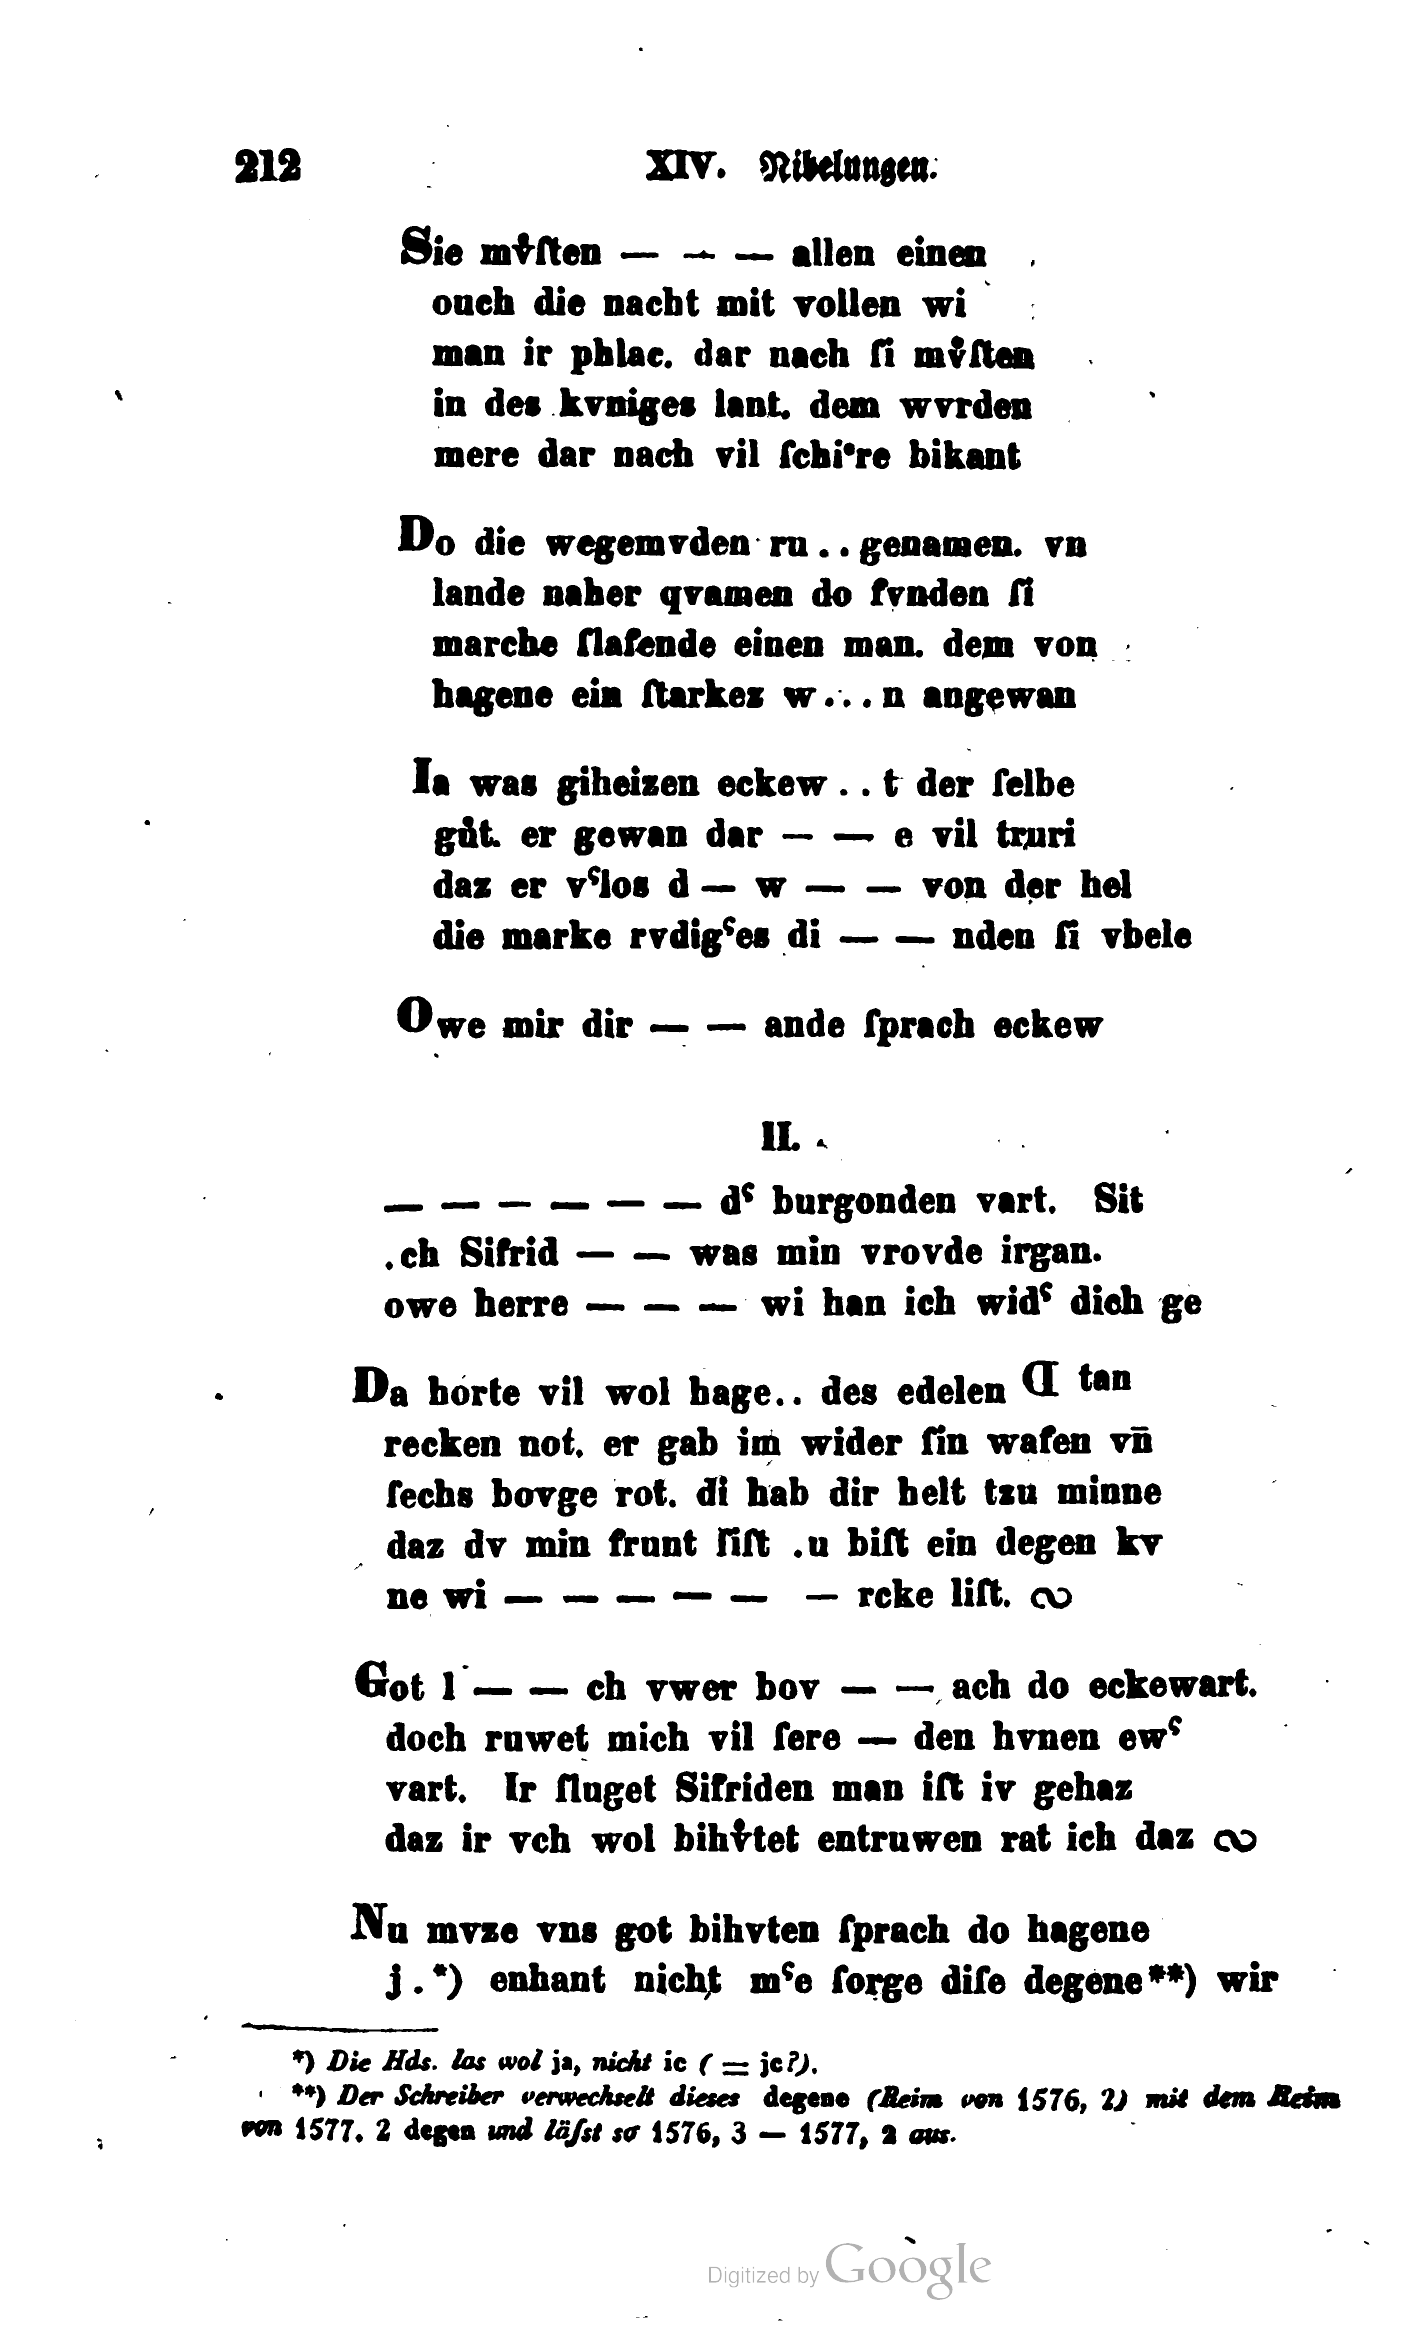 212 XIV. Nibelungen.
Sie mv̊ſten — — — allen einen
ouch die nacht mit vollen wi
man ir phlac. dar nach ſi mv̊ſten
in des kvniges lant. dem wvrden
mere dar nach vil ſchiͤre bikant
Do die wegemvden ru . . genamen. vn
lande naher qvamen do fvnden ſi
marche ſlafende einen man. dem von
hagene ein ſtarkez w . . . n angewan
Ia was giheizen eckew . . t der ſelbe
gůt. er gewan dar — — e vil truri
daz er vˤlos d — w — — von der hel
die marke rvdigˤes di — — nden ſi vbele
Owe mir dir — — ande ſprach eckew
II.
— — — — — — dˤ burgonden vart. Sit
.ch Sifrid — — was min vrovde irgan.
owe herre — — — wi han ich widˤ dich ge
Da horte vil wol hage.. des edelen ᗡ tan
recken not. er gab im wider ſin wafen vn̄
ſechs bovge rot. di hab dir helt tzu minne
daz dv min frunt ſiſt .u biſt ein degen kv
ne wi — — — — — — rcke liſt. ᔓ
Got l — — ch vwer bov — — ach do eckewart.
doch ruwet mich vil ſere — den hvnen ewˤ
vart. Ir ſluget Sifriden man iſt iv gehaz
daz ir vch wol bihv̊tet entruwen rat ich daz ᔓ
Nu mvze vns got bihvten ſprach do hagene
j .*) enhant nicht mˤe ſorge diſe degene**) wir
*) Die Hds. las wol ja, nicht ic ( = jc?).
**) Der Schreiber verwechselt dieses degene (Reim von 1576, 2) mit dem Reim
von 1577. 2 degen und läſst so 1576, 3 — 1577, 2 aus.
Digitized by Google